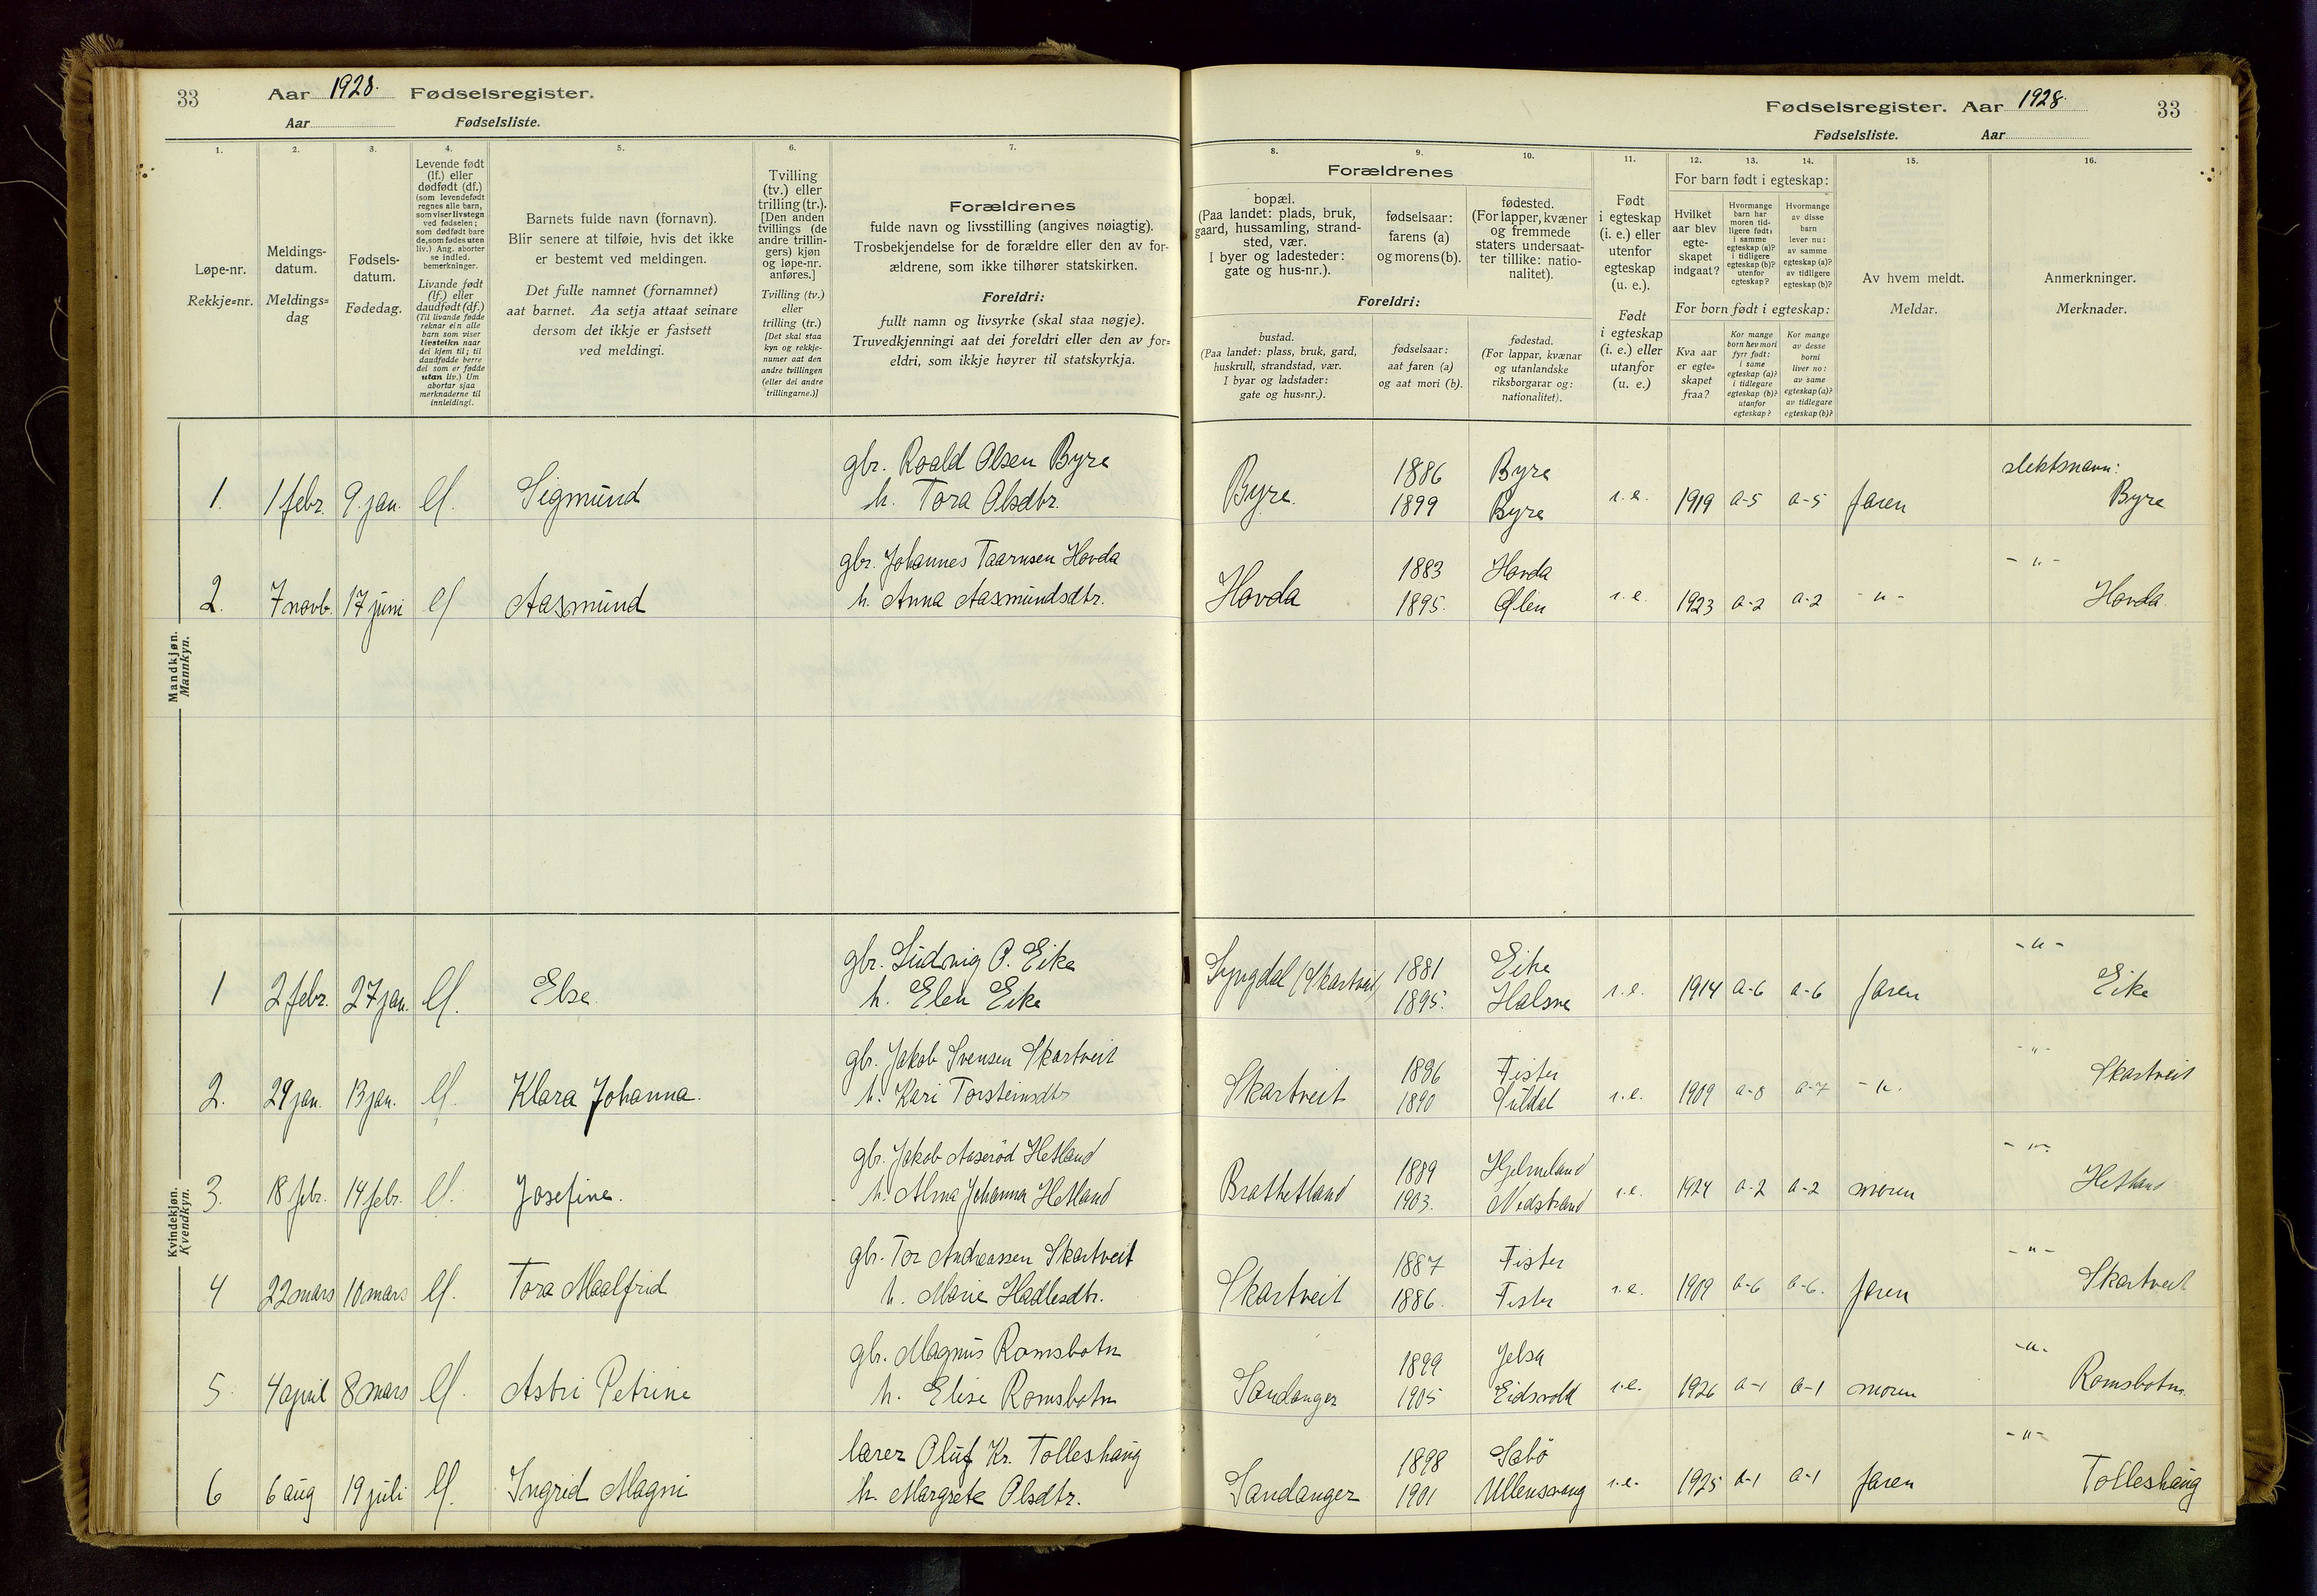 33 Aar 1928. Fødselsregister.
Aar Fødselsliste.
Fødselsregister. Aar 1928. 33
Fødselsliste. Aar
1. 2. 3. 4. 5. 6. 7.
Løpe-nr.
Rekkje=nr.
Meldings-
datum.
Meldings=
dag
Fødsels-
datum.
Fødedag.
Levende født
(lf.) eller
dødfødt (df.)
(som levendefødt
regnes alle barn,
som viser livstegn
ved fødselen;
som dødfødt bare
de, som fødes uten
liv.) Ang. aborter
se indled.
bemerkninger.
Livande født
(lf.) eller
daudfødt (df.)
(Til livande fødde
reknar ein alle
barn som viser
livsteikn naar
dei kjem til; til
daudfødde berre
dei som er fødde
utan liv.) Um
abortar sjaa
merknaderne til
innleidingi.
Barnets fulde navn (fornavn).
Blir senere at tilføie, hvis det ikke
er bestemt ved meldingen.
Det fulle namnet (fornamnet)
aat barnet. Aa setja attaat seinare
dersom det ikkje er fastsett
ved meldingi.
Tvilling
(tv.) eller
trilling (tr.).
[Den anden
tvillings (de
andre trillin-
gers) kjøn
og løpe-nr.
anføres.]
Tvilling (tv.)
eller
trilling (tr.)
[Det skal staa
kyn og rekkje-
numer aat den
andre tvillingen
(eller dei andre
trillingarne.)]
Forældrenes
fulde navn og livsstilling (angives nøiagtig).
Trosbekjendelse for de forældre eller den av for-
ældrene, som ikke tilhører statskirken.
Foreldri:
fullt namn og livsyrke (skal staa nøgje).
Truvedkjenningi aat dei foreldri eller den av for=
eldri, som ikkje høyrer til statskyrkja.
8. 9. 10. 11. 12. 13. 14. 15. 16.
Forældrenes
bopæl.
(Paa landet: plads, bruk,
gaard, hussamling, strand-
sted, vær.
I byer og ladesteder:
gate og hus-nr.).
fødselsaar:
farens (a)
og morens (b).
fødested.
(For lapper, kvæner
og fremmede
staters undersaat-
ter tillike: natio-
nalitet).
Foreldri:
bustad.
(Paa landet: plass, bruk, gard,
huskrull, strandstad, vær.
I byar og ladstader:
gate og hus=nr.).
fødselsaar:
aat faren (a)
og aat mori (b).
fødestad.
(For lappar, kvænar
og utanlandske
riksborgarar og:
nationalitet).
Født
i egteskap
(i. e.) eller
utenfor
egteskap
(u. e.).
Født
i egteskap
(i. e.) eller
utanfor
(u. e.)
For barn født i egteskap:
Hvilket
aar blev
egte-
skapet
indgaat?
Hvormange
barn har
moren tid-
ligere født:
i samme
egteskap (a)?
i tidligere
egteskap (b)?
utenfor
egteskap?
Hvormange
av disse
barn
lever nu:
av samme
egteskap (a)?
av tidligere
egteskap (b)?
For born født i egteskap:
Kva aar
er egte=
skapet
fraa?
Kor mange
born hev mori
fyrr født:
i same
egteskap (a)?
i tidlegare
egteskap (b)?
utanfor
egteskap?
Kor mange
av desse
borni
liver no:
av same
egteskap (a)?
av tidlegare
egteskap (b)?
Av hvem meldt.
Meldar.
Anmerkninger.
Merknader.
Mandkjøn.
Mannkyn.
gbr. Roald Olsen Byre 1886 Byre slektsnavn:
1. 1 febr. 9. jan. lf. Sigmund h. Tora Olsdtr. Byre. 1899 Byre i.e. 1919 a-5 a-5 faren Byre
gbr. Johannes Taarnsen Hovda 1883 Hovda -"-
2. 7 novb. 17 juni lf Aasmund h. Anna Aasmundsdtr. Hovda 1895. Ølen i.e. 1923 a-2 a-2 -"- Hovda
Kvindekjøn.
Kvendkyn.
gbr. Ludvig O. Eike 1881 Eike -"-
1 2 febr. 27 jan. lf. Else h. Elen Eike Lyngdal (Skartveit) 1895. Halsne i.e. 1914 a-6 a-6 faren Eike
gbr. Jakob Svensen Skartveit 1886 Fister -"-
2. 29 jan. 13 jan. lf. Klara Johanna. h. Kari Torsteinsdtr Skartveit 1890 Suldal i.e. 1909 a-8 a-7 -"- Skartveit
gbr. Jakob Aaserød Hetland 1889 Hjelmeland -"-
3. 18 febr. 14 febr. lf. Josefine. h. Alma Johanna Hetland Brathetland 1903. Nedstrand i.e. 1924 a-2 a-2 moren Hetland
gbr. Tor Andreassen Skartveit 1887 Fister -"-
4 22 mars 10 mars lf. Tora Maalfrid h. Marie Hadlesdtr. Skartveit 1886. Fister i.e. 1909 a-6 a-6. faren Skartveit
gbr. Magnus Romsbotn 1899 Jelsa -"-
5. 4 april 8 mars lf. Astri Petrine h. Elise Romsbotn Sandanger 1905 Eidsvold i.e. 1926 a-1 a-1 moren Romsbotn.
lærer Oluf Kr. Tolleshaug 1898 Sæbö -"-
6 6 aug 19 juli lf. Ingrid Magni h. Margrete Olsdtr. Sandanger 1901 Ullensvang i.e. 1925 a-1 a-1 faren Tolleshaug